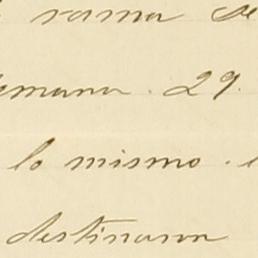 rama de
emana. 29.
lo mismo.
destinara